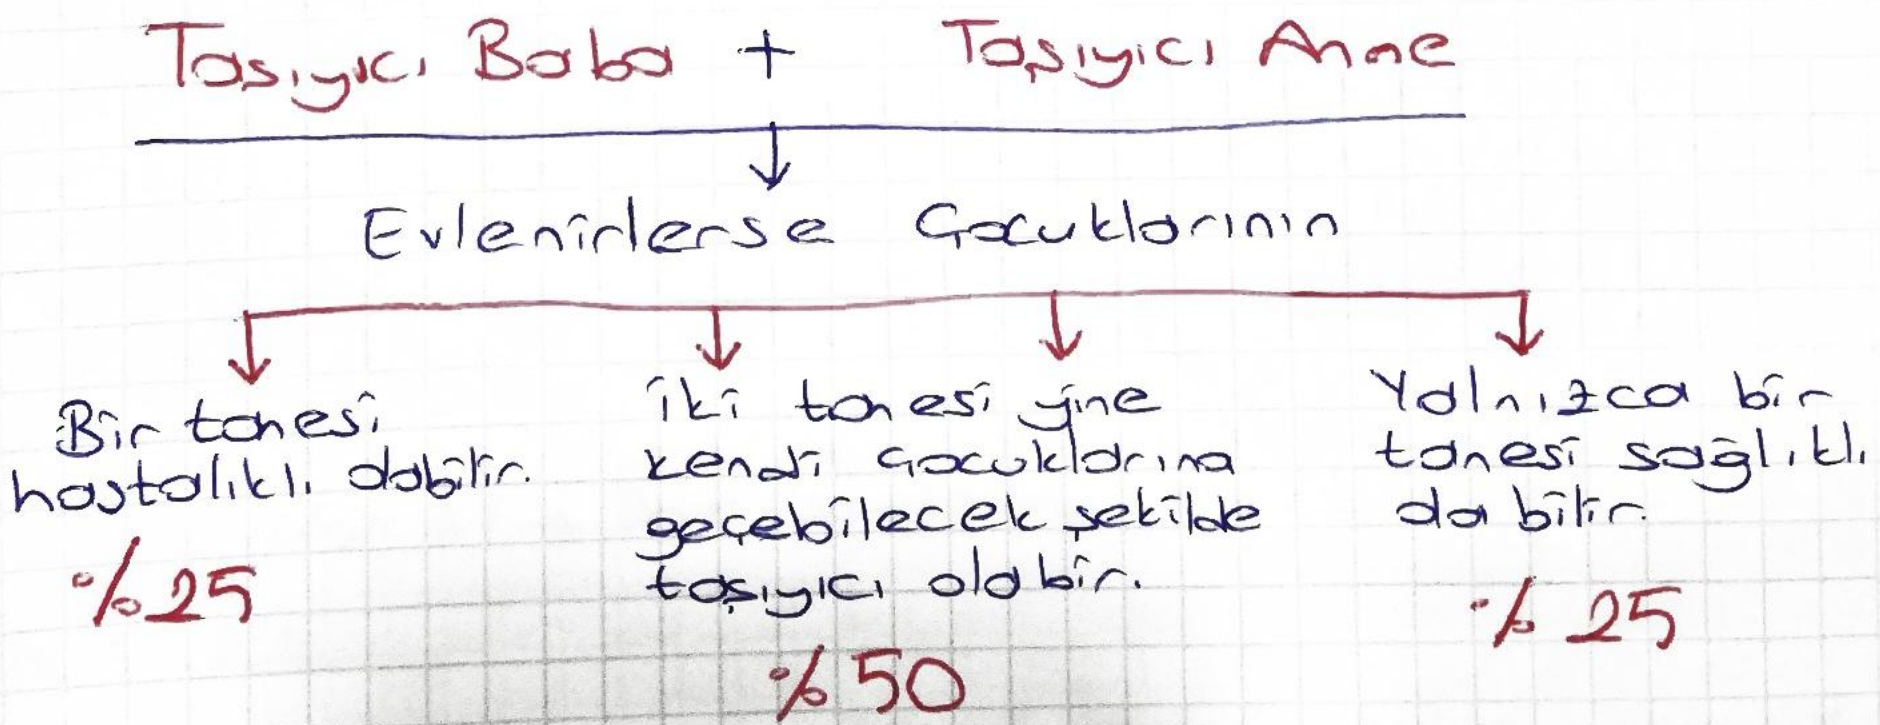 Taşıyıcı Baba + Taşıyıcı Anne
Evlenirlerse Çocuklarının
Bir tanesi
hastalıklı olabilir.
%25
iki tanesi yine
kendi çocuklarına
geçebilecek şekilde
taşıyıcı olabir.
%50
Yalnızca bir
tanesi sağlıklı
olabilir.
%25